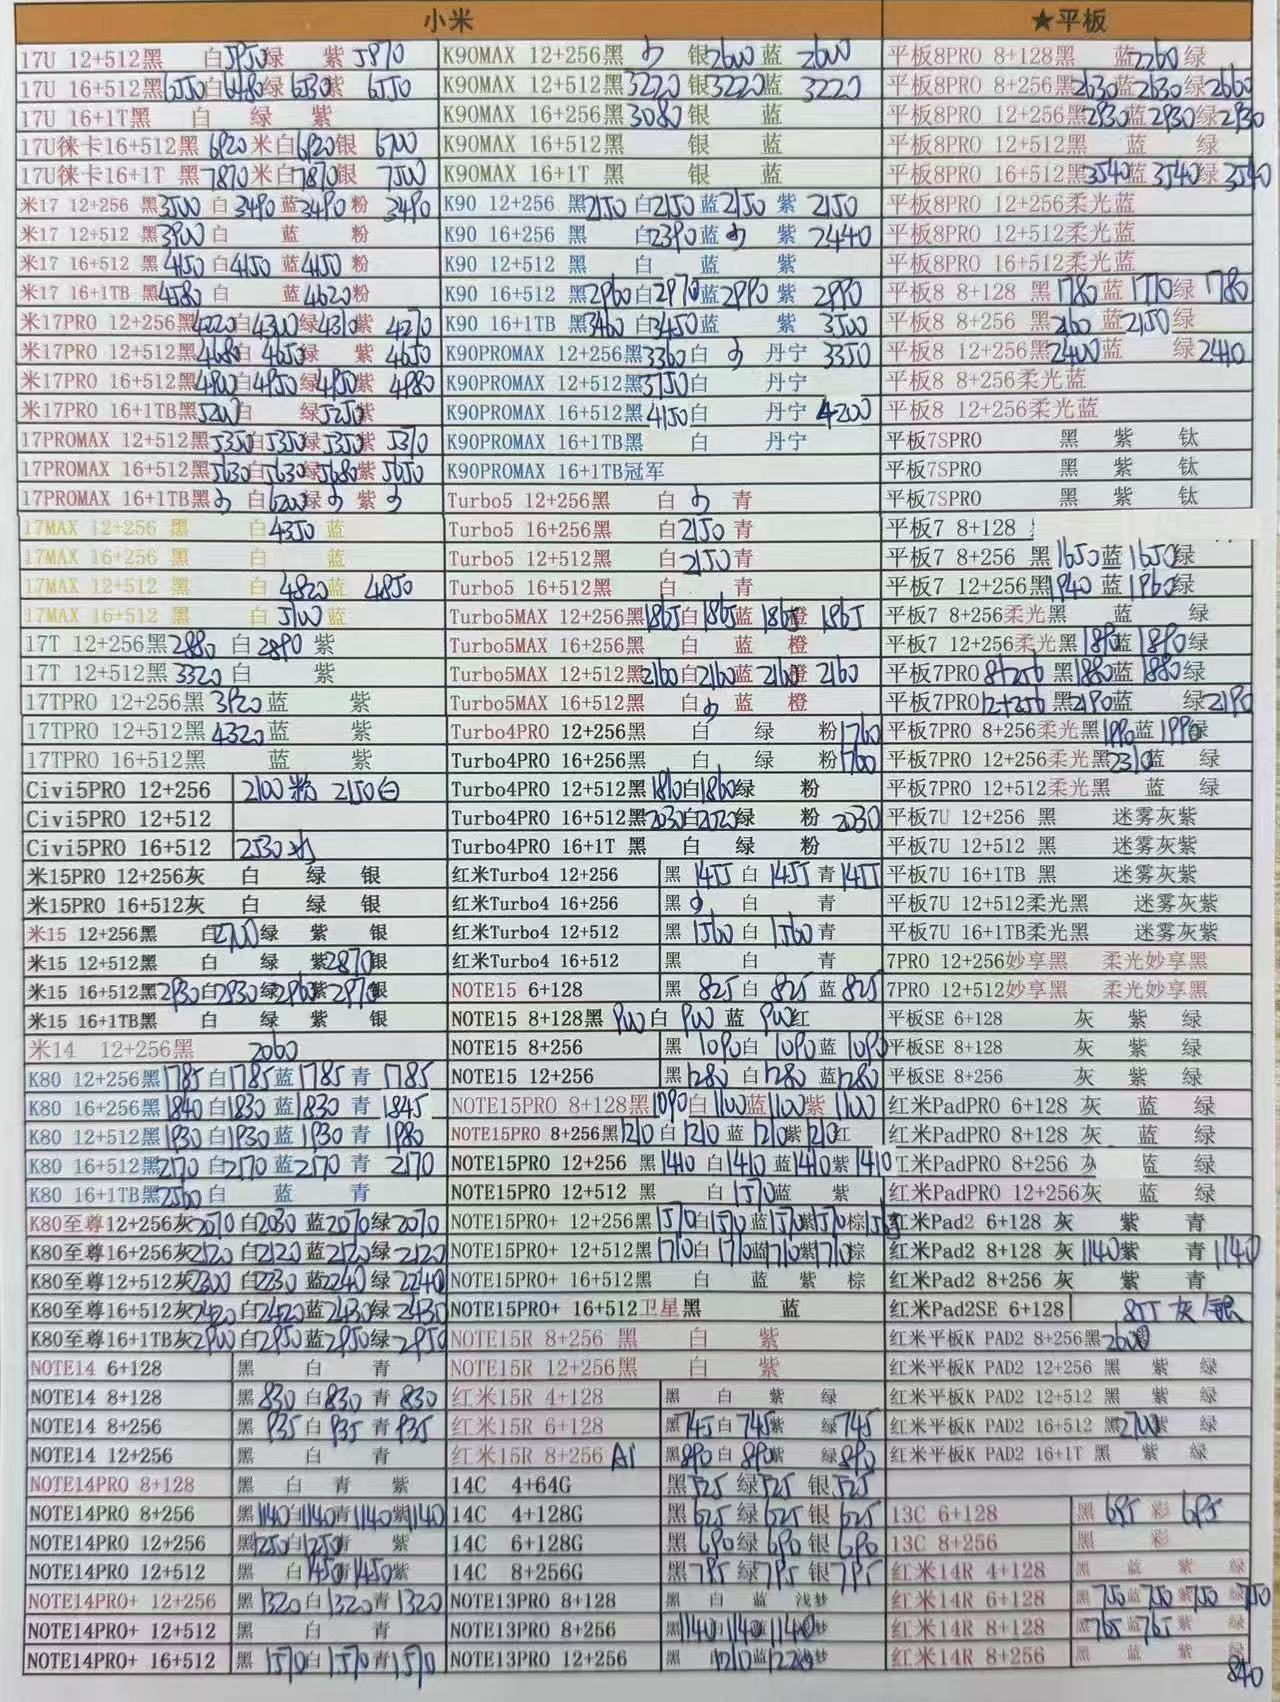 小米
17U 12+512黑 白5950绿 紫5970
17U 16+512黑6550白6480绿6530紫 6550
17U 16+1T黑 白 绿 紫
17U徕卡16+512黑 6920米白6920银 6700
17U徕卡16+1T 黑7870米白7870银 7500
米17 12+256 黑3500白3490蓝3490粉 3490
米17 12+512 黑3900白 蓝 粉
米17 16+512 黑4150白4150蓝4150粉
米17 16+1TB黑4580白 蓝4620粉
米17PRO 12+256黑4220白4300绿4310紫 4270
米17PRO 12+512黑4680白4650绿 紫4650
米17PRO 16+512黑4900白4950绿4950紫 4980
米17PRO 16+1TB黑5200白 绿5250紫
17PROMAX 12+512黑5350白5350绿5350紫 5370
17PROMAX 16+512黑5630白5630绿5680紫5650
17PROMAX 16+1TB黑 白6200绿 紫
17MAX 12+256 黑 白4350蓝
17MAX 16+256 黑 白 蓝
17MAX 12+512 黑 白4820蓝 4850
17MAX 16+512 黑 白5100蓝
17T 12+256黑2880 白2890 紫
17T 12+512黑3320白 紫
17TPRO 12+256黑3920蓝 紫
17TPRO 12+512黑4320蓝 紫
17TPRO 16+512黑 蓝 紫
Civi5PRO 12+256 2100粉 2150白
Civi5PRO 12+512
Civi5PRO 16+512 2530
米15PRO 12+256灰 白 绿 银
米15PRO 16+512灰 白 绿 银
米15 12+256黑 白2700绿 紫 银
米15 12+512黑 白 绿 紫2870银
米15 16+512黑2930白2930绿2960紫2970银
米15 16+1TB黑 白 绿 紫 银
米14 12+256黑 2060
K80 12+256黑1785白1785蓝1785青 1785
K80 16+256黑1840白1830蓝1830青 1845
K80 12+512黑1930白1930蓝1930青 1980
K80 16+512黑2170白2170蓝2170青 2170
K80 16+1TB黑2560白 蓝 青
K80至尊12+256灰2070白2030蓝2070绿2070
K80至尊16+256灰2120白2120蓝2120绿2120
K80至尊12+512灰2300白2230蓝2240绿2240
K80至尊16+512灰2420白2420蓝2430绿2430
K80至尊16+1TB灰2900白2950蓝2950绿2950
NOTE14 6+128 黑 白 青
NOTE14 8+128 黑830白830青830
NOTE14 8+256 黑935白935青935
NOTE14 12+256 黑 白 青
NOTE14PRO 8+128 黑 白 青 紫
NOTE14PRO 8+256 黑1140白1140青1140紫1140
NOTE14PRO 12+256 黑1250白1250青 紫
NOTE14PRO 12+512 黑 白1450青1450紫
NOTE14PRO+ 12+256 黑1320白1320青1320
NOTE14PRO+ 12+512 黑 白 青
NOTE14PRO+ 16+512 黑 1570白1570青1570
K90MAX 12+256黑 银2600蓝 2600
K90MAX 12+512黑3220银3220蓝 3220
K90MAX 16+256黑3080银 蓝
K90MAX 16+512黑 银 蓝
K90MAX 16+1T黑 银 蓝
K90 12+256 黑2150白2150蓝2150紫 2150
K90 16+256 黑 白2390蓝 紫2440
K90 12+512 黑 白 蓝 紫
K90 16+512 黑2960白2970蓝2990紫 2990
K90 16+1TB 黑3460白3450蓝 紫 3500
K90PROMAX 12+256黑3360白 丹宁 3350
K90PROMAX 12+512黑3750白 丹宁
K90PROMAX 16+512黑4150白 丹宁 4200
K90PROMAX 16+1TB黑 白 丹宁
K90PROMAX 16+1TB冠军
Turbo5 12+256黑 白 青
Turbo5 16+256黑 白2150青
Turbo5 12+512黑 白2150青
Turbo5 16+512黑 白 青
Turbo5MAX 12+256黑1865白1865蓝1865橙 1865
Turbo5MAX 16+256黑 白 蓝 橙
Turbo5MAX 12+512黑2160白2160蓝2160橙2160
Turbo5MAX 16+512黑 白 蓝 橙
Turbo4PRO 12+256黑 白 绿 粉1760
Turbo4PRO 16+256黑 白 绿 粉1700
Turbo4PRO 12+512黑1810白1860绿 粉
Turbo4PRO 16+512黑2030白2020绿 粉 2030
Turbo4PRO 16+1T 黑 白 绿 粉
红米Turbo4 12+256 黑 1455白 1455青1455
红米Turbo4 16+256 黑 白 青
红米Turbo4 12+512 黑 1560白 1560青
红米Turbo4 16+512 黑 白 青
NOTE15 6+128 黑 825白 825蓝825
NOTE15 8+128黑 900白 900蓝 900红
NOTE15 8+256 黑 1090白 1090蓝1090
NOTE15 12+256 黑1280白1280蓝1280
NOTE15PRO 8+128黑1090白1100蓝1100紫 1100
NOTE15PRO 8+256黑1210白1210蓝1210紫1210红
NOTE15PRO 12+256 黑1410白1410蓝1410紫1410
NOTE15PRO 12+512 黑 白1570蓝 紫
NOTE15PRO+ 12+256黑1570白1570蓝1570紫1570棕
NOTE15PRO+ 12+512黑1710白1710蓝1710紫1710棕
NOTE15PRO+ 16+512黑 白 蓝 紫 棕
NOTE15PRO+ 16+512卫星黑 蓝
NOTE15R 8+256 黑 白 紫
NOTE15R 12+256黑 白 紫
红米15R 4+128 黑 白 紫 绿
红米15R 6+128 黑745白745紫 绿745
红米15R 8+256 A1 黑890白890紫 绿890
14C 4+64G 黑525绿525银525
14C 4+128G 黑625绿625银625
14C 6+128G 黑690绿690银690
14C 8+256G 黑795绿795银795
NOTE13PRO 8+128 黑 白 蓝 浅梦
NOTE13PRO 8+256 黑1140白1140蓝1140浅梦
NOTE13PRO 12+256 黑 1210蓝1220浅梦
★平板
平板8PRO 8+128黑 蓝2260绿
平板8PRO 8+256黑2630蓝2630绿2660
平板8PRO 12+256黑2930蓝2930绿2930
平板8PRO 12+512黑 蓝 绿
平板8PRO 16+512黑3540蓝3540绿3540
平板8PRO 12+256柔光蓝
平板8PRO 12+512柔光蓝
平板8PRO 16+512柔光蓝
平板8 8+128 黑1780蓝1770绿 1780
平板8 8+256 黑2160蓝2150绿
平板8 12+256黑2400蓝 绿2410
平板8 8+256柔光蓝
平板8 12+256柔光蓝
平板7SPRO 黑 紫 钛
平板7SPRO 黑 紫 钛
平板7SPRO 黑 紫 钛
平板7 8+128
平板7 8+256 黑1650蓝1650绿
平板7 12+256黑1940蓝1960绿
平板7 8+256柔光黑 蓝 绿
平板7 12+256柔光黑1890蓝1890绿
平板7PRO 8+256 黑1880蓝1880绿
平板7PRO12+256 黑2190蓝 绿2190
平板7PRO 8+256柔光黑1990蓝1990绿
平板7PRO 12+256柔光黑2310蓝 绿
平板7PRO 12+512柔光黑 蓝 绿
平板7U 12+256 黑 迷雾灰紫
平板7U 12+512 黑 迷雾灰紫
平板7U 16+1TB 黑 迷雾灰紫
平板7U 12+512柔光黑 迷雾灰紫
平板7U 16+1TB柔光黑 迷雾灰紫
7PRO 12+256妙享黑 柔光妙享黑
7PRO 12+512妙享黑 柔光妙享黑
平板SE 6+128 灰 紫 绿
平板SE 8+128 灰 紫 绿
平板SE 8+256 灰 紫 绿
红米PadPRO 6+128 灰 蓝 绿
红米PadPRO 8+128 灰 蓝 绿
红米PadPRO 8+256 蓝 绿
红米PadPRO 12+256灰 蓝 绿
红米Pad2 6+128 灰 紫 青
红米Pad2 8+128 灰1140紫 青1140
红米Pad2 8+256 灰 紫 青
红米Pad2SE 6+128 855 灰/银
红米平板K PAD2 8+256黑2600
红米平板K PAD2 12+256 黑 紫 绿
红米平板K PAD2 12+512 黑 紫 绿
红米平板K PAD2 16+512 黑2700紫 绿
红米平板K PAD2 16+1T 黑 紫 绿
13C 6+128 黑 695彩 695
13C 8+256 黑 彩
红米14R 4+128 黑 蓝 紫 绿
红米14R 6+128 黑750蓝750紫750绿750
红米14R 8+128 黑765蓝765紫 绿
红米14R 8+256 黑 蓝 紫 绿840